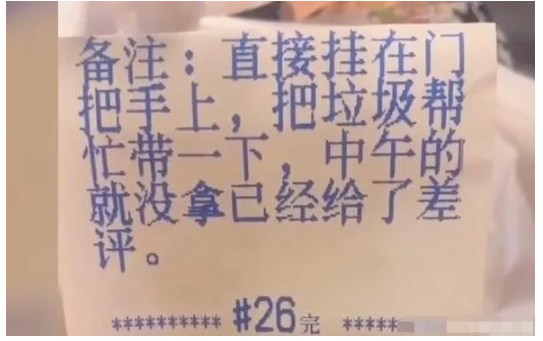 备注：直接挂在门
把手上，把垃圾帮
忙带一下，中午的
就没拿已经给了差
评。
********** #26完 *****